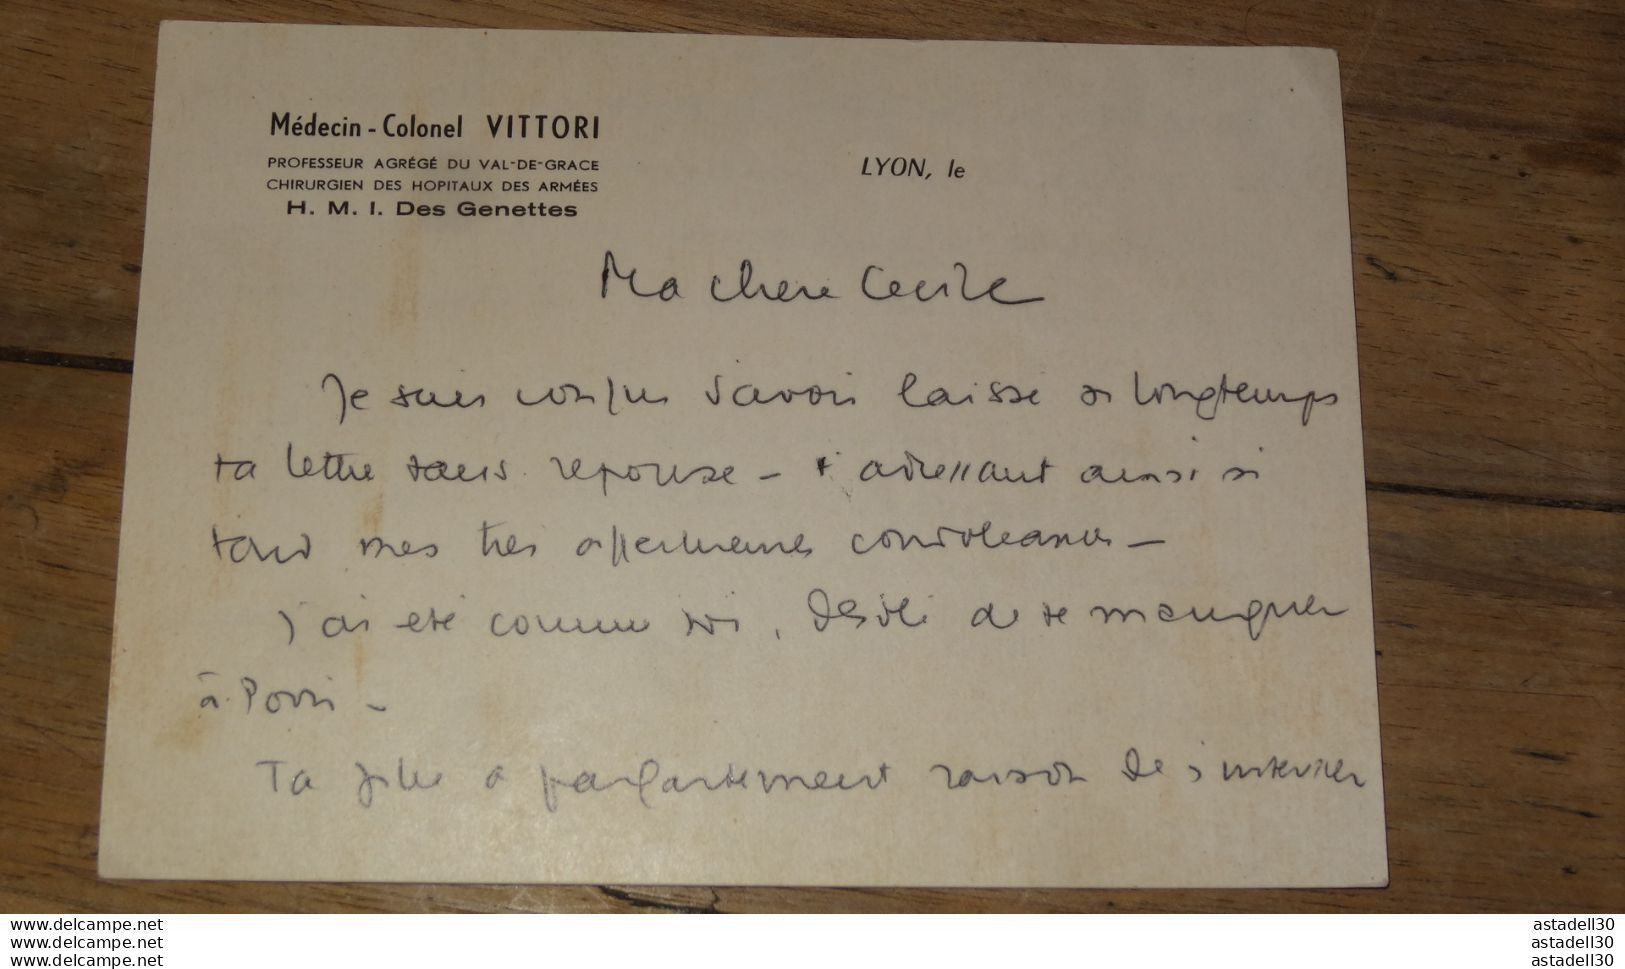 Médecin - Colonel VITTORI
PROFESSEUR AGRÉGÉ DU VAL-DE-GRACE
CHIRURGIEN DES HOPITAUX DES ARMÉES
H. M. I. Des Genettes
LYON, le
Ma chere Cecile
Je suis confus d'avoir laissé si longtemps
ta lettre sans reponse - t'adressant ainsi si
tard mes très affectueuses condoleances -
J'ai été comme toi, désolé de te manquer
à Paris -
Ta fille a parfaitement raison de s'intervier
www.delcampe.net
www.delcampe.net
www.delcampe.net
astadell30
astadell30
astadell30